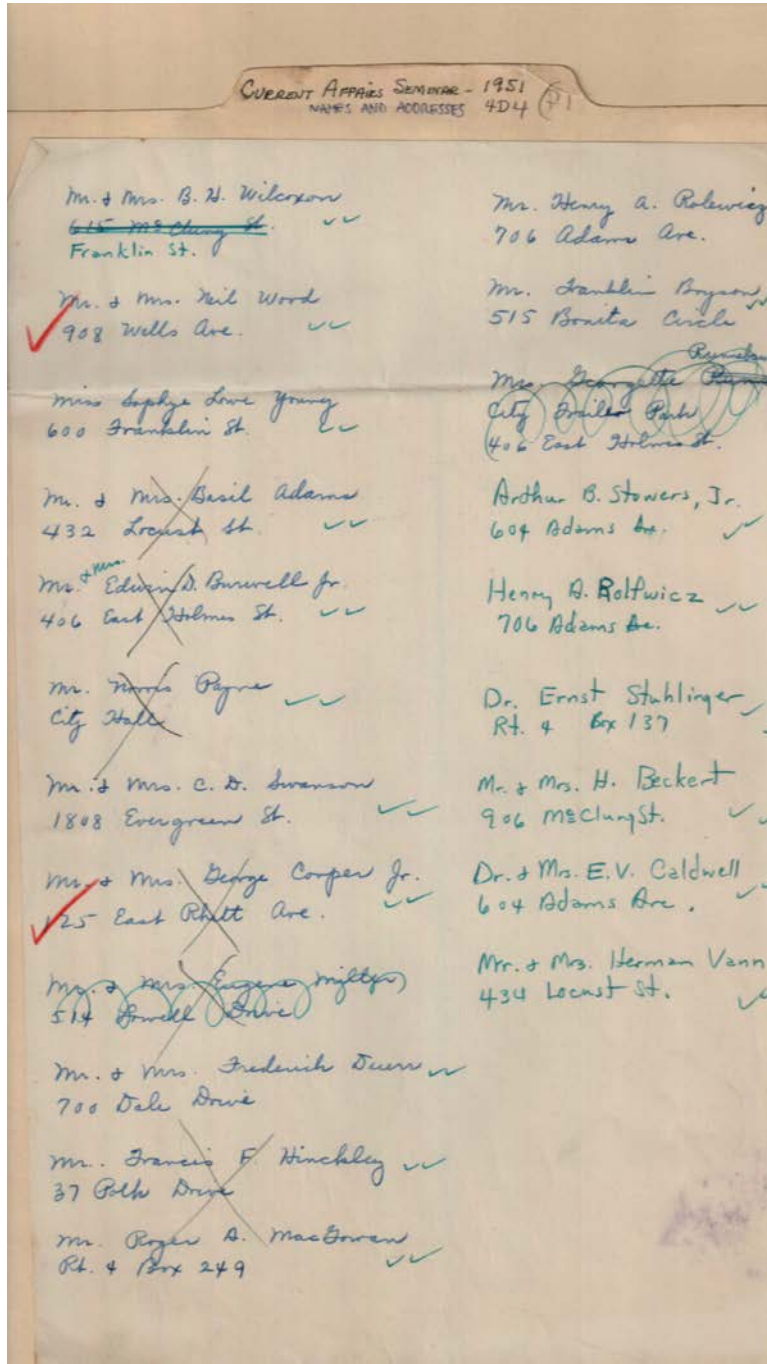 CURRENT AFFAIRS SEMINAR - 1951
NAMES AND ADDRESSES 4D4 P1
Mr. & Mrs. B. H. Wilcoxon
615 McClung St.
Franklin St.
Mr. & Mrs. Neil Word
908 Wells Ave.
Miss Sophye Lowe Young
600 Franklin St.
Mr. & Mrs. Basil Adams
432 Locust St.
Mr. & Mrs. Edwin D. Burwell Jr.
406 East Holmes St.
Mr. Norris Payne
City Hall
Mr. & Mrs. C. D. Swanson
1808 Evergreen St.
Mr. & Mrs. George Cooper Jr.
125 East Rhett Ave.
Mr. & Mrs. Eugene
514 Lowell Drive
Mr. & Mrs. Frederick Duerr
700 Dale Drive
Mr. Francis F. Hinckley
37 Polk Drive
Mr. Roger A. MacGowan
Rt. 4 Box 249
Mr. Henry A. Rolewicz
706 Adams Ave.
Mr. Franklin Bryson
515 Bonita Circle
Mrs. Georgette
City Trailer Park
406 East Holmes St.
Arthur B. Stowers, Jr.
604 Adams Ave.
Henry A. Rolfwicz
706 Adams Ave.
Dr. Ernst Stuhlinger
Rt. 4 Box 137
Mr. & Mrs. H. Beckert
906 McClung St.
Dr. & Mrs. E.V. Caldwell
604 Adams Ave.
Mr. & Mrs. Herman Vann
434 Locust St.